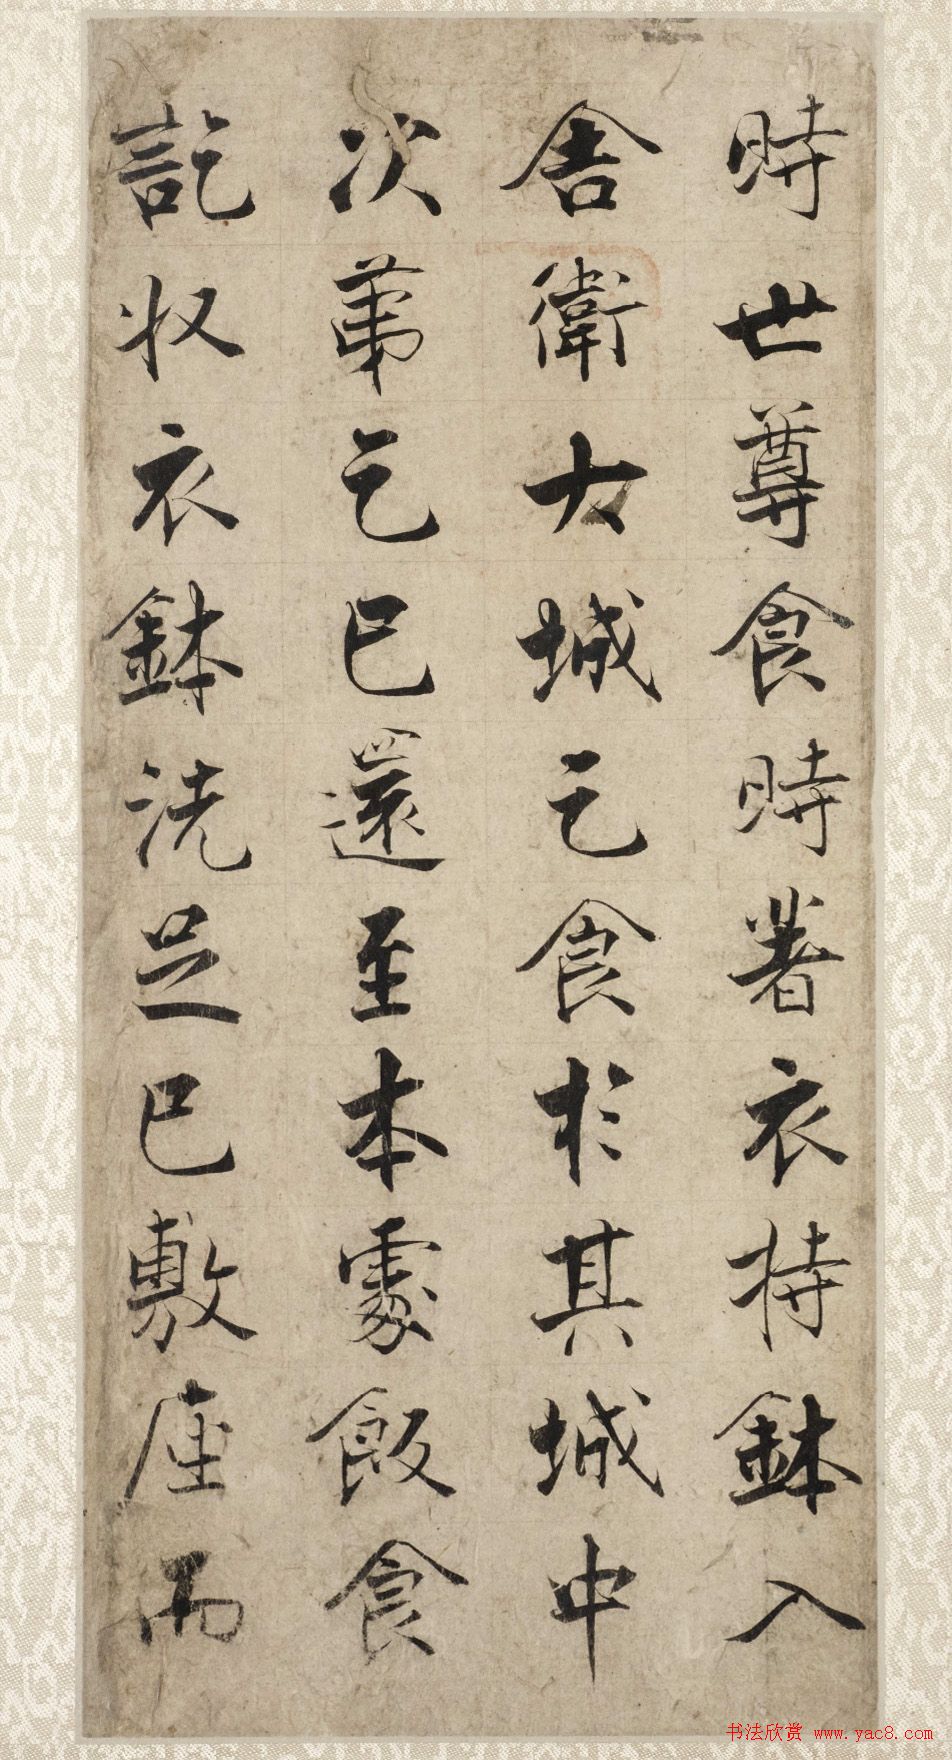 時世尊食時著衣持鉢入
舍衛大城乞食於其城中
次第乞已還至本處飯食
訖收衣鉢洗足已敷座而
书法欣赏 www.yac8.com